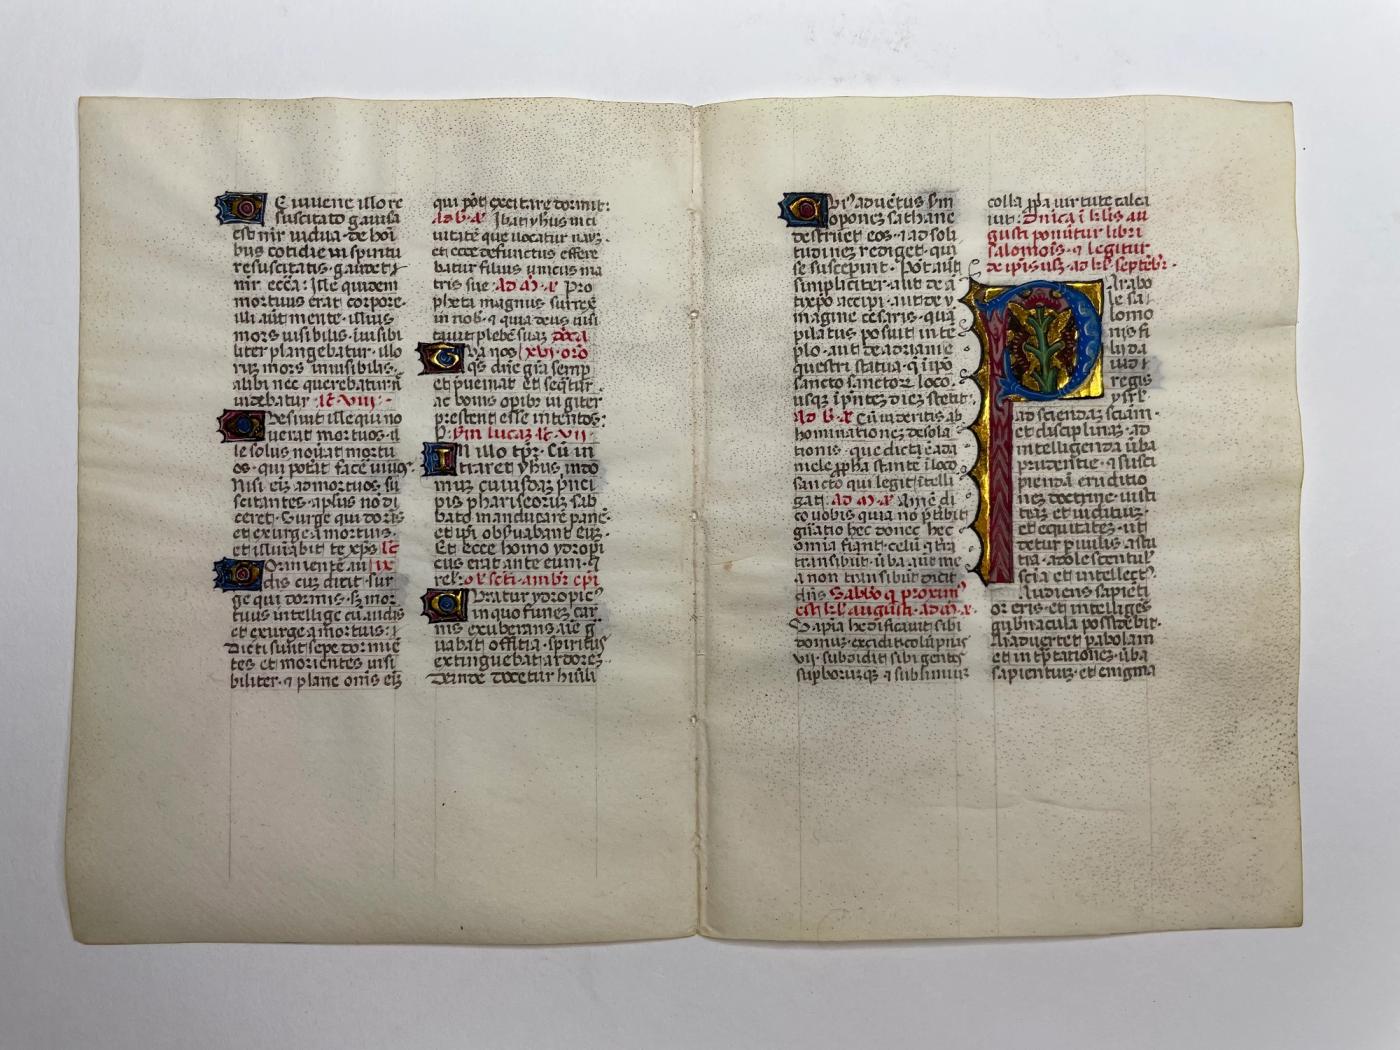 E iuuene illo re
suscitato gauisa
est mr̄ uidua · de hoī
bus cotidie in spiritu
resuscitatis · gaudet
mr̄ ecc̄a : ille quidem
mortuus erat corpore ·
illi aūt mente · illius
mors uisibilis · uisibi
liter plangebatur · illo
rum mors inuisibilis ·
alibi nec querebatur n̄
uidebatur · lc̄ · VIII ·
uerat mortuos · il
le solus nouat mortu
os · qui potat face uiuos
Nisi eīz ad mortuos su
scitantes · apl̄us nō di
ceret · Surge qui dormis
et exurge a mortuis ·
et illuīabit te xp̄s lc̄
Ormientē aū IX
dis cuz dicit · sur
ge qui dormis · sz mor
tuus intellige cū audis
et exurge a mortuis :
Dicti sunt sepe dormiē
tes et morientes uisi
biliter · ⁊ plane om̄s eīz
qui pōt excitare dormit :
ad b · a' Ibat yhus in ci
uitatē que uocatur naym ·
et ecce defunctus effere
batur filius unicus ma
tris sue · ad m̄ · a' Pro
pheta magnus surrex̄
in nob · ⁊ quia deus uisi
tauit plebē suaz
ua nos XVI · oro
qs dn̄e gr̄a semp
et p̄ueniat et seq̄tur ·
ac bonis opib iugiter
prestent esse intentos :
Sm lucaz lc̄ · VII ·
N illo tp̄r · Cū in
traret yhus in do
muz cuiusdaz p̄nci
pis phariseoruz sab
bato manducare panē ·
et ip̄i obs̄uabant eūz ·
Et ecce homo ydropi
cus erat ante eum · ⁊
rel · om̄l sc̄ti · ambr̄ ep̄i
Uratur ydropic'
in quo fluxus car
nis exuberans aīe g
uabat offitia · spiritus
extinguebat ardorez ·
Deinde docetur hūili
b ad uētus sm
oponez sathane
destruet eos · ⁊ ad soli
tudinez rediget · qui
se susceperint · Pōt aut
simpliciter · aut de ā
tixpō accipi · aut de y
magine cesaris · qua
pilatus posuit in te
plo · aut de adriani e
questri statua · q̄ ī ipō
sancto sanctorz loco
usqz ī p̄ntez diez stetit :
ad b · a' Cū uideritis ab
hominationez desola
tionis · que dicta ē a da
niele p̄pha stante ī loco
sancto qui legit ītelli
gat · ad m̄ · a' Amē di
co uobis quia nō p̄ribit
gn̄atio hec donec hec
omīa fiant · celū ⁊ t̄ra
transibūt · ūba aūt me
a non transibūt dicit
dn̄s Sabbo q proxim'
est kl augusti · ad m̄ · a' ·
Sapīa hedificauit sibi
domuz · excidit colūpnas
VII · subdidit sibi gentes
suꝑborūqz ⁊ sublimium
colla p̄pa uirtute calca
uit : Dn̄ica ī klis au
gusti ponūtur libri
salomōis · ⁊ legitur
de ip̄is usqz ad kl septēbr ·
Arabo
le sa
lomo
nis fi
lij da
uid
regis
ysrl ·
ad sciendaz sciam ·
et disciplinaz · ad
intelligenda ūba
prudentie · ⁊ susci
piendā eruditio
nez doctrine · iusti
tiaz et iudicium ·
et equitatez · ut
detur p̄uulis astu
tia · adolescentul'
scīa et intellect'
Audiens sapieti
or eris · et intelliges
gubnacula possidebit ·
Aīaduertet pabolam
et int̄ptationez · ūba
sapientuz · et enigma